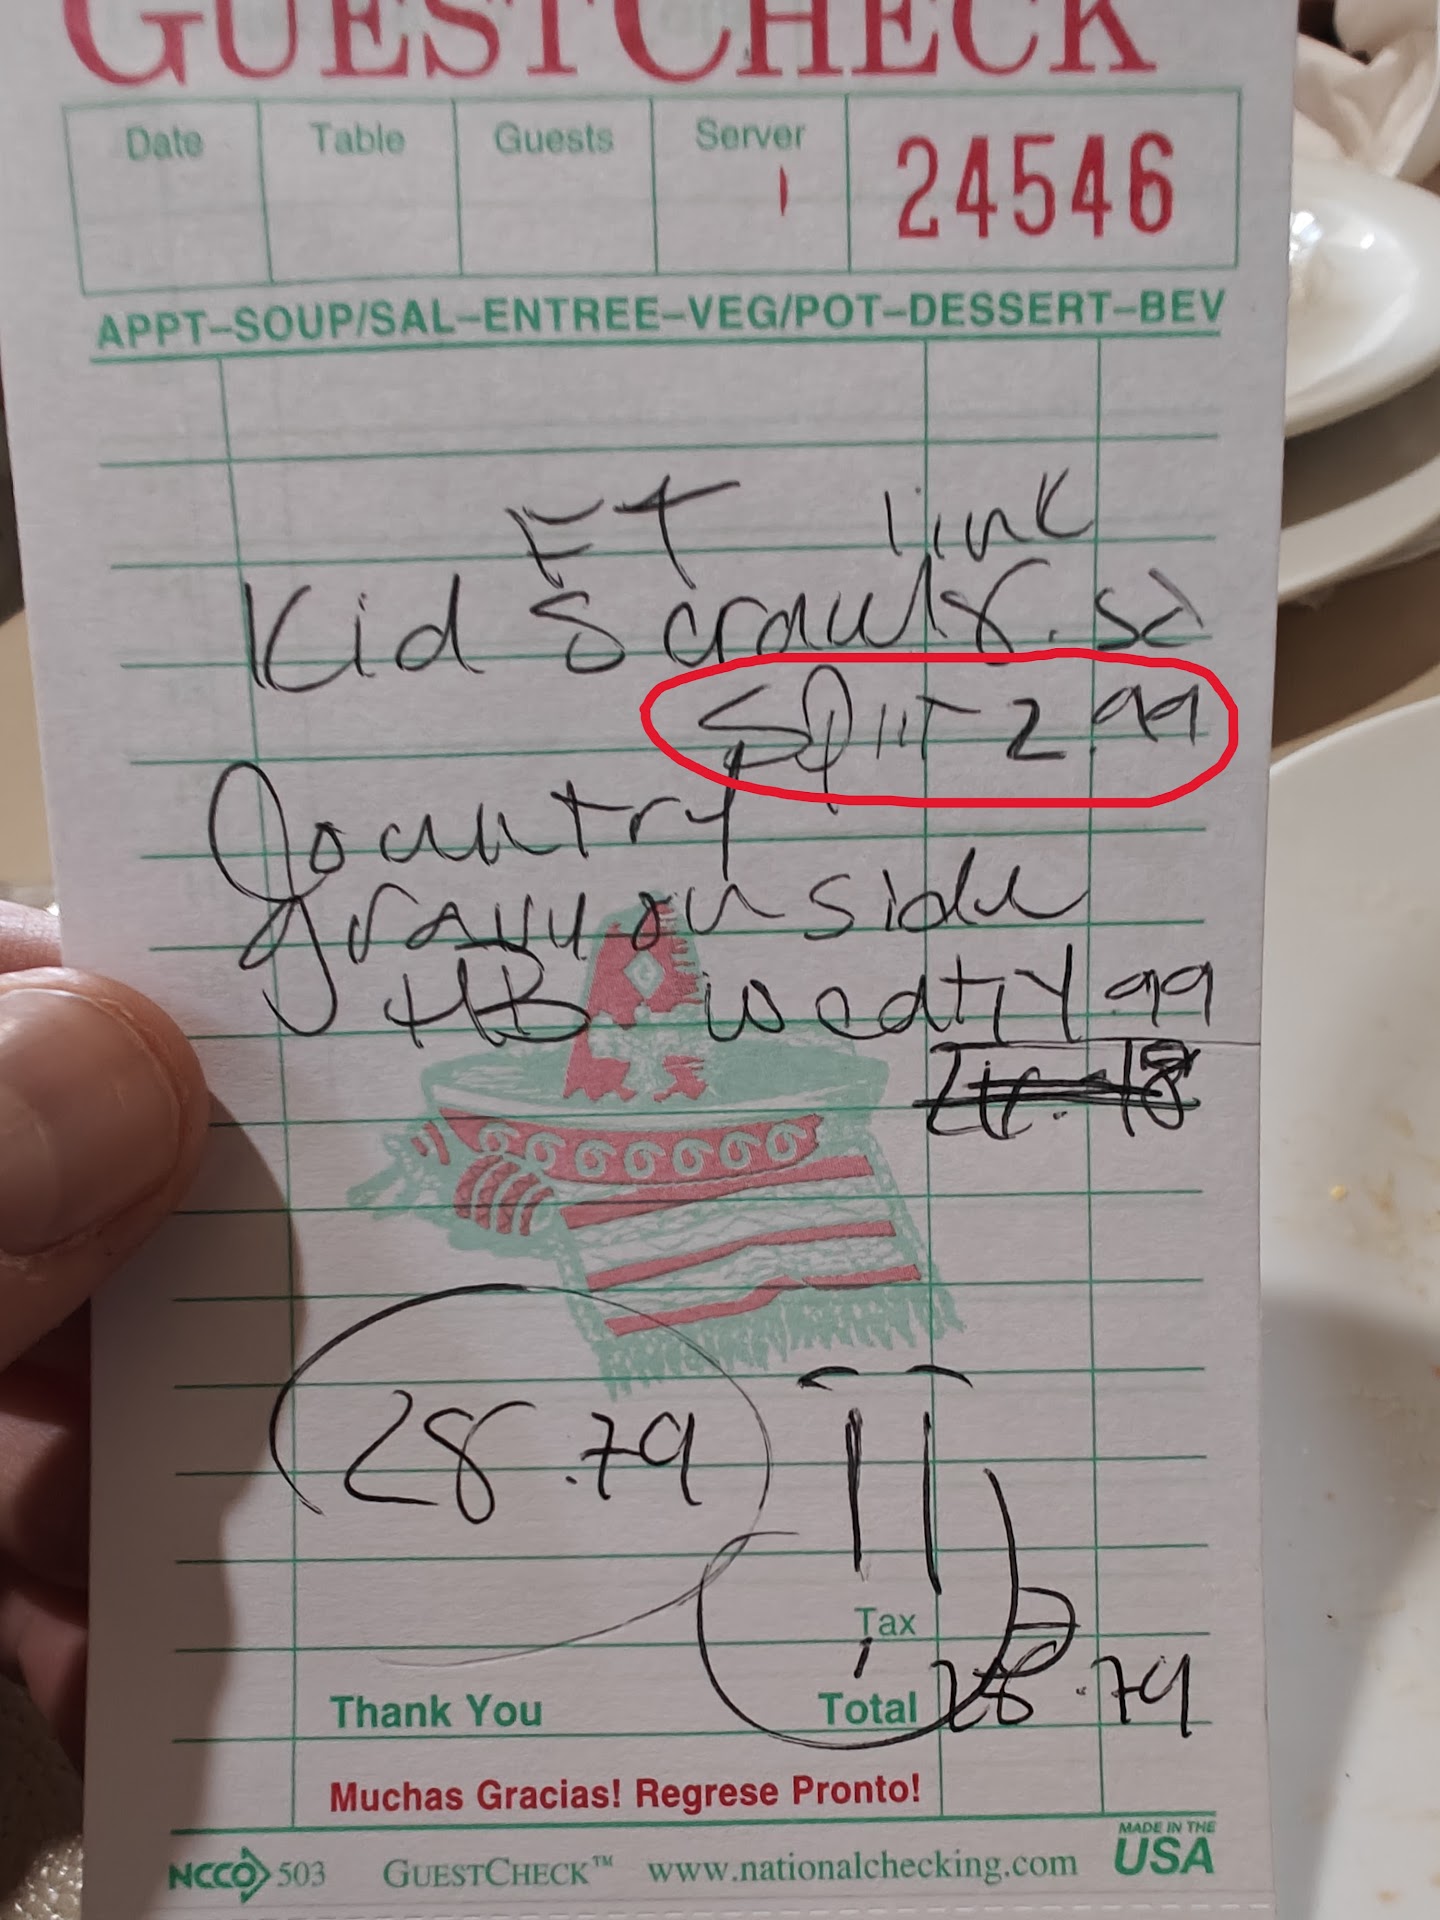 GUESTCHECK
Date Table Guests Server 24546
APPT–SOUP/SAL–ENTREE–VEG/POT–DESSERT–BEV
FT link
Kid scraw 8.50
Split 2.99
country
gravy on side
HB weat 14.99
28.79
Tax
Thank You Total 28.79
Muchas Gracias! Regrese Pronto!
NCCO 503 GUESTCHECK™ www.nationalchecking.com MADE IN THE USA